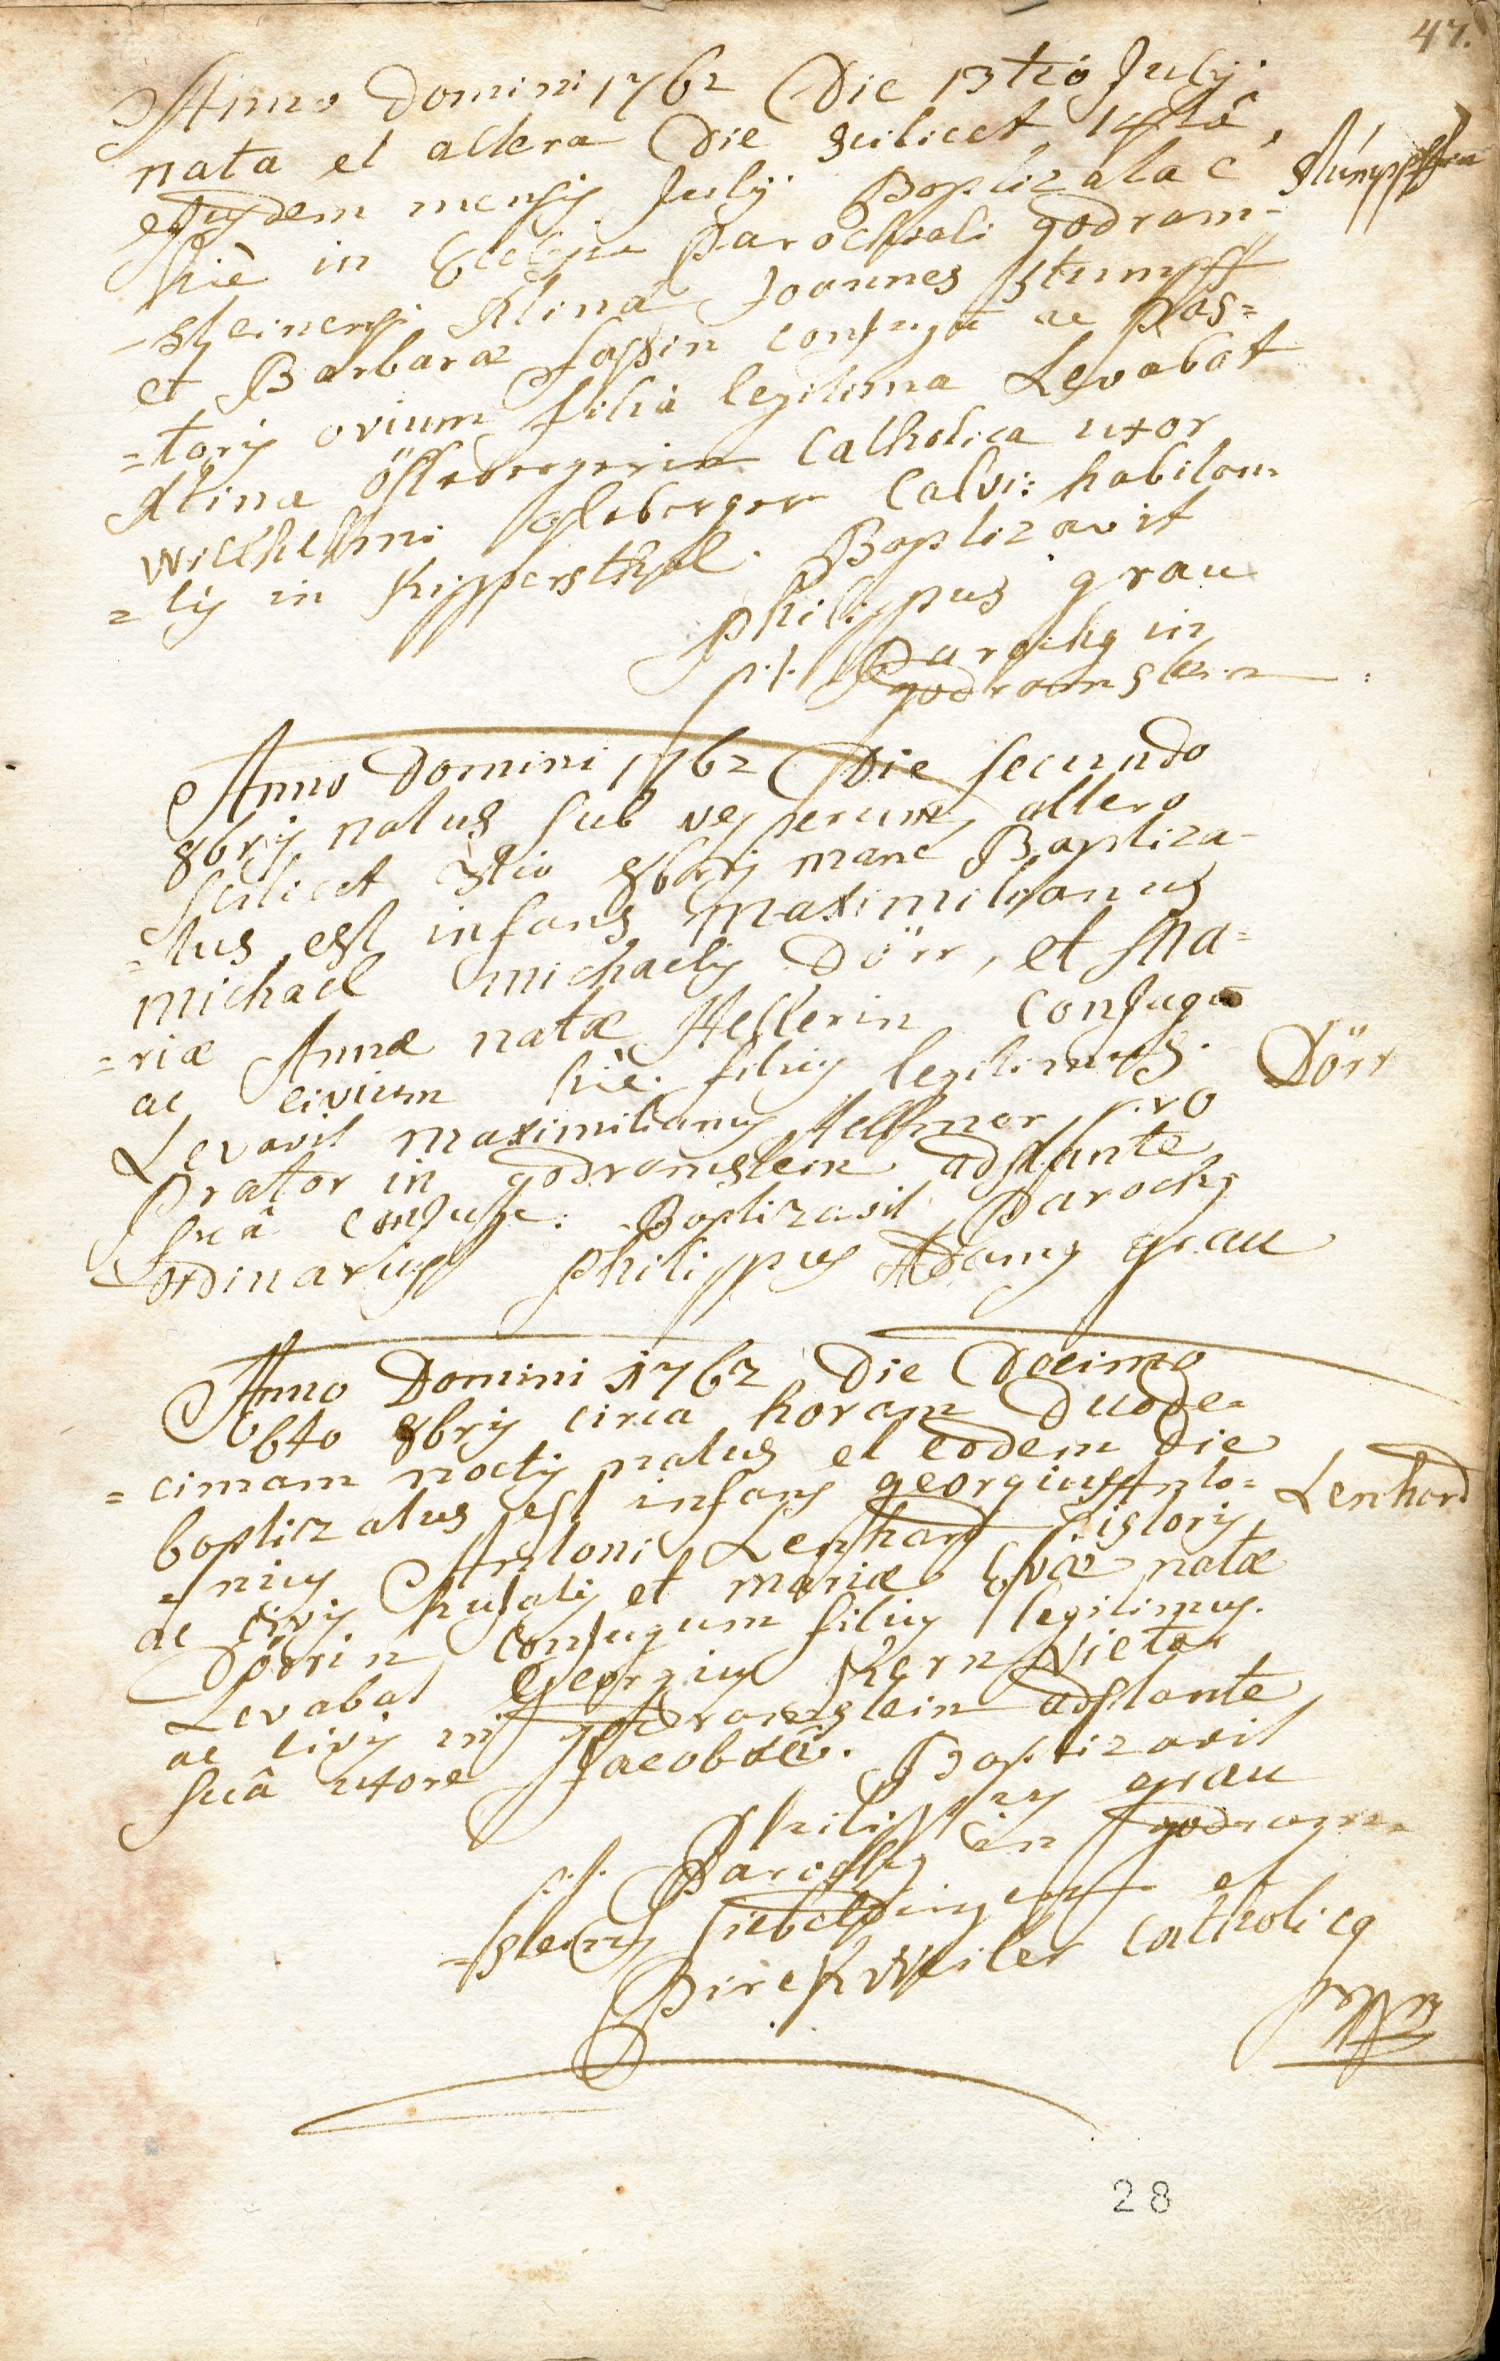 47.
Anno Domini 1762 Die 13tio July
nata et altera Die scilicet 14tâ
ejusdem mensis July Baptizata ê
hic in Ecclesia Parochiali godram-
-steinensi Atina Joannes Stumpff
et Barbaræ conjugū ac pas=
=toris ovium filia legitima Levabat
Atina Catholica uxor
Wilhelmi Calvi: habitan=
=tis in Baptizavit
Philippus grau
p.t. Parochus in
godramstein
Stumpff
Anno Domini 1762 Die secundo
8bris natus sub vesperum, altero
scilicet 3tio 8bris mane Baptiza-
=tus est infans Maximilianus
Michael Michaelis Dörr, et Ma=
=riæ Annæ natæ Hellerin conjugū
ac civium hic filius legitimus.
Levavit Maximilianus pro
Prator in godramstein adstante
suâ conjuge. Baptizavit Parochus
ordinarius Philippus Adamus grau
Dörr
Anno Domini 1762 Die Decimo
8bris circa horam duode=
=cimam noctis natus et eodem die
baptizatus est infans georgius Anto=
=nius Antoni Lenhard Pistoris
ac civis et mariæ Evæ natæ
Dörrin conjugum filius legitimus.
Levabat georgius Kern Vietor
ac civis in godramstein adstante
suâ uxore Jacobæâ. Baptizavit
Philippus grau
p.t. Parochus in godram=
=stein, Siebeldingen et
BirckWeiler Catholicq
Lenhard
28